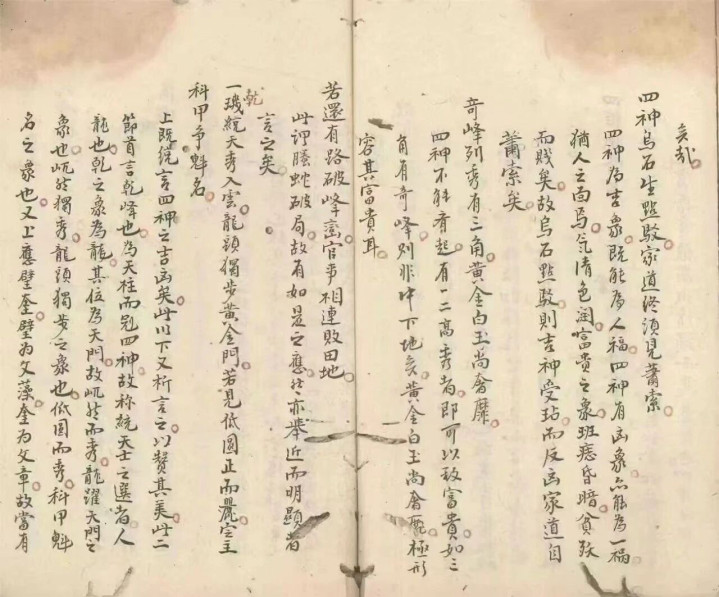 矣哉
四神烏石生點駁家道終須見蕭索
四神為吉象既能為人福四神有凶象亦能為人禍
猶人之面焉气清色潤富貴之象班痣昏暗貧
而賤矣故烏石點駁則吉神受玷而反凶家道自
蕭索矣
奇峰列秀有三角黃金白玉尚奢靡
四神不能齊起有一二高秀者即可以致富貴如三
角有奇峰列非中下地矣黃金白玉尚奢靡極形
容其富貴耳
若還有路破峰巒官事相連敗田地
此謂螣蛇破局故有如是之應然亦舉近而明顯者
言之矣
乾
一璣統天秀入雲龍頭獨步黃金門若見低圓正而麗定主
科甲爭魁名
上既統言四神之吉凶矣此以下又析言之以贊其美此二
節首言乾峰也為天柱而冠四神故称統天士之選者人
龍也乾之象為龍其位為天門故屼然而秀龍躍天門之
象也屼然獨秀龍頭獨步之象也低圓而秀科甲魁
名之象也又上應壁奎壁為文藻奎為文章故當有